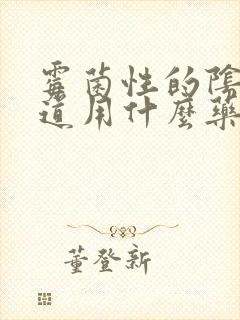 霉菌性的陰
道用什麼藥
董登新